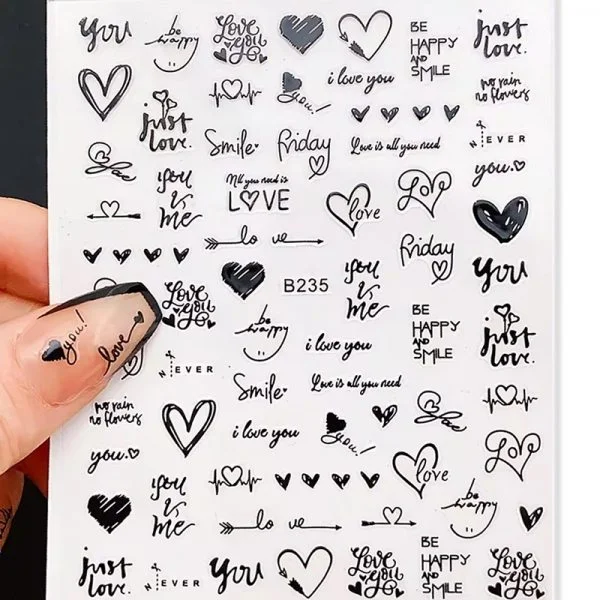 you
be
happy
Love
you
BE
HAPPY
AND
SMILE
just
love.
i love you
you!
no rain
no flowers
just
love.
Smile
Friday
Love is all you need
NEVER
you.
you
&
me
All you need is
LOVE
love
Love
lo ve
Friday
you
B235
you
&
me
Love
you
be
happy
i love you
BE
HAPPY
AND
SMILE
just
love.
you!
love
EVER
Smile
Love is all you need
no rain
no flowers
i love you
you!
you.
love
Love
you
&
me
be
happy
lo ve
just
love.
EVER
you
Love
you
BE
HAPPY
AND
SMILE
Love
you